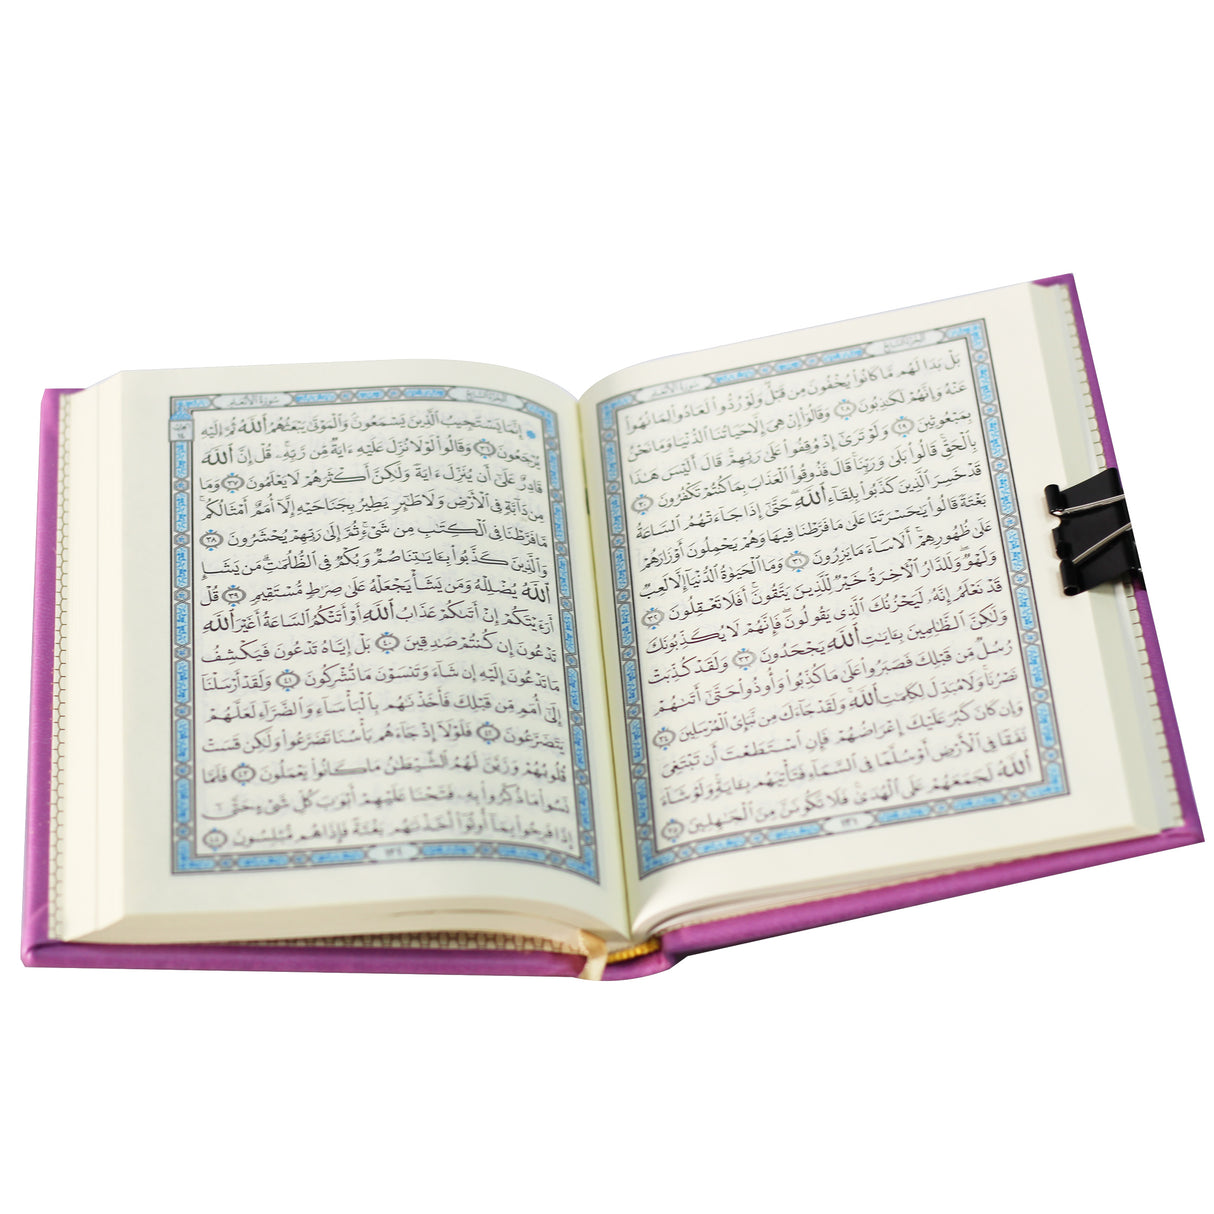 الجزء السابع سورة الأنعام
بَلْ بَدَا لَهُم مَّا كَانُوا۟ يُخْفُونَ مِن قَبْلُ ۖ وَلَوْ رُدُّوا۟ لَعَادُوا۟ لِمَا نُهُوا۟
عَنْهُ وَإِنَّهُمْ لَكَـٰذِبُونَ ٢٨ وَقَالُوٓا۟ إِنْ هِىَ إِلَّا حَيَاتُنَا ٱلدُّنْيَا وَمَا نَحْنُ
بِمَبْعُوثِينَ ٢٩ وَلَوْ تَرَىٰٓ إِذْ وُقِفُوا۟ عَلَىٰ رَبِّهِمْ ۚ قَالَ أَلَيْسَ هَـٰذَا
بِٱلْحَقِّ ۚ قَالُوا۟ بَلَىٰ وَرَبِّنَا ۚ قَالَ فَذُوقُوا۟ ٱلْعَذَابَ بِمَا كُنتُمْ تَكْفُرُونَ ٣٠
قَدْ خَسِرَ ٱلَّذِينَ كَذَّبُوا۟ بِلِقَآءِ ٱللَّهِ ۖ حَتَّىٰٓ إِذَا جَآءَتْهُمُ ٱلسَّاعَةُ
بَغْتَةً قَالُوا۟ يَـٰحَسْرَتَنَا عَلَىٰ مَا فَرَّطْنَا فِيهَا وَهُمْ يَحْمِلُونَ أَوْزَارَهُمْ
عَلَىٰ ظُهُورِهِمْ ۚ أَلَا سَآءَ مَا يَزِرُونَ ٣١ وَمَا ٱلْحَيَوٰةُ ٱلدُّنْيَآ إِلَّا لَعِبٌ
وَلَهْوٌ ۖ وَلَلدَّارُ ٱلْـَٔاخِرَةُ خَيْرٌ لِّلَّذِينَ يَتَّقُونَ ۗ أَفَلَا تَعْقِلُونَ ٣٢
قَدْ نَعْلَمُ إِنَّهُۥ لَيَحْزُنُكَ ٱلَّذِى يَقُولُونَ ۖ فَإِنَّهُمْ لَا يُكَذِّبُونَكَ
وَلَـٰكِنَّ ٱلظَّـٰلِمِينَ بِـَٔايَـٰتِ ٱللَّهِ يَجْحَدُونَ ٣٣ وَلَقَدْ كُذِّبَتْ
رُسُلٌ مِّن قَبْلِكَ فَصَبَرُوا۟ عَلَىٰ مَا كُذِّبُوا۟ وَأُوذُوا۟ حَتَّىٰٓ أَتَىٰهُمْ
نَصْرُنَا ۚ وَلَا مُبَدِّلَ لِكَلِمَـٰتِ ٱللَّهِ ۚ وَلَقَدْ جَآءَكَ مِن نَّبَإِى۟ ٱلْمُرْسَلِينَ ٣٤
وَإِن كَانَ كَبُرَ عَلَيْكَ إِعْرَاضُهُمْ فَإِنِ ٱسْتَطَعْتَ أَن تَبْتَغِىَ
نَفَقًا فِى ٱلْأَرْضِ أَوْ سُلَّمًا فِى ٱلسَّمَآءِ فَتَأْتِيَهُم بِـَٔايَةٍ ۚ وَلَوْ شَآءَ
ٱللَّهُ لَجَمَعَهُمْ عَلَى ٱلْهُدَىٰ ۚ فَلَا تَكُونَنَّ مِنَ ٱلْجَـٰهِلِينَ ٣٥
١٣١
الجزء السابع سورة الأنعام
إِنَّمَا يَسْتَجِيبُ ٱلَّذِينَ يَسْمَعُونَ ۘ وَٱلْمَوْتَىٰ يَبْعَثُهُمُ ٱللَّهُ ثُمَّ إِلَيْهِ
يُرْجَعُونَ ٣٦ وَقَالُوا۟ لَوْلَا نُزِّلَ عَلَيْهِ ءَايَةٌ مِّن رَّبِّهِۦ ۚ قُلْ إِنَّ ٱللَّهَ
قَادِرٌ عَلَىٰٓ أَن يُنَزِّلَ ءَايَةً وَلَـٰكِنَّ أَكْثَرَهُمْ لَا يَعْلَمُونَ ٣٧ وَمَا
مِن دَآبَّةٍ فِى ٱلْأَرْضِ وَلَا طَـٰٓئِرٍ يَطِيرُ بِجَنَاحَيْهِ إِلَّآ أُمَمٌ أَمْثَالُكُم ۚ
مَّا فَرَّطْنَا فِى ٱلْكِتَـٰبِ مِن شَىْءٍ ۚ ثُمَّ إِلَىٰ رَبِّهِمْ يُحْشَرُونَ ٣٨
وَٱلَّذِينَ كَذَّبُوا۟ بِـَٔايَـٰتِنَا صُمٌّ وَبُكْمٌ فِى ٱلظُّلُمَـٰتِ ۗ مَن يَشَإِ
ٱللَّهُ يُضْلِلْهُ وَمَن يَشَأْ يَجْعَلْهُ عَلَىٰ صِرَٰطٍ مُّسْتَقِيمٍ ٣٩ قُلْ
أَرَءَيْتَكُمْ إِنْ أَتَىٰكُمْ عَذَابُ ٱللَّهِ أَوْ أَتَتْكُمُ ٱلسَّاعَةُ أَغَيْرَ ٱللَّهِ
تَدْعُونَ إِن كُنتُمْ صَـٰدِقِينَ ٤٠ بَلْ إِيَّاهُ تَدْعُونَ فَيَكْشِفُ
مَا تَدْعُونَ إِلَيْهِ إِن شَآءَ وَتَنسَوْنَ مَا تُشْرِكُونَ ٤١ وَلَقَدْ أَرْسَلْنَآ
إِلَىٰٓ أُمَمٍ مِّن قَبْلِكَ فَأَخَذْنَـٰهُم بِٱلْبَأْسَآءِ وَٱلضَّرَّآءِ لَعَلَّهُمْ
يَتَضَرَّعُونَ ٤٢ فَلَوْلَآ إِذْ جَآءَهُم بَأْسُنَا تَضَرَّعُوا۟ وَلَـٰكِن قَسَتْ
قُلُوبُهُمْ وَزَيَّنَ لَهُمُ ٱلشَّيْطَـٰنُ مَا كَانُوا۟ يَعْمَلُونَ ٤٣ فَلَمَّا
نَسُوا۟ مَا ذُكِّرُوا۟ بِهِۦ فَتَحْنَا عَلَيْهِمْ أَبْوَٰبَ كُلِّ شَىْءٍ حَتَّىٰٓ
إِذَا فَرِحُوا۟ بِمَآ أُوتُوٓا۟ أَخَذْنَـٰهُم بَغْتَةً فَإِذَا هُم مُّبْلِسُونَ ٤٤
١٣٢